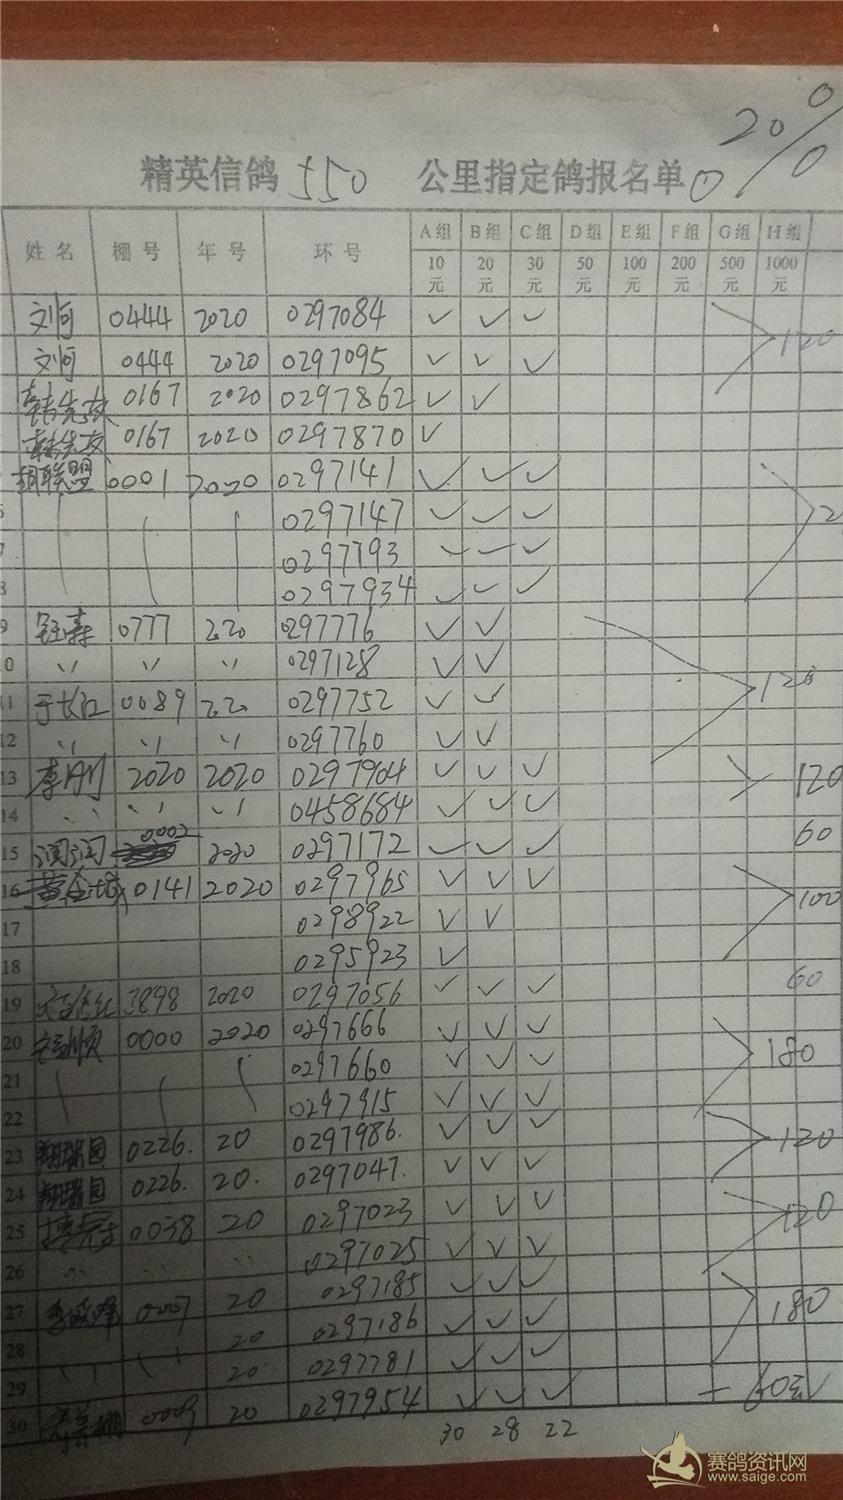 20%
精英信鸽 550 公里指定鸽报名单 ①
姓名 棚号 年号 环号 A组 B组 C组 D组 E组 F组 G组 H组
10元 20元 30元 50元 100元 200元 500元 1000元
刘向 0444 2020 0297084 ✓ ✓ ✓ 120
刘向 0444 2020 0297095 ✓ ✓ ✓
0167 2020 0297862 ✓ ✓
0167 2020 0297870 ✓
胡联盟 0001 2020 0297141 ✓ ✓ ✓
0297147 ✓ ✓ ✓ 2
0297793 ✓ ✓ ✓
0297934 ✓ ✓ ✓
9 0777 2020 0297776 ✓ ✓
0 〃 〃 〃 0297128 ✓ ✓ 120
11 于长江 0089 2020 0297752 ✓ ✓
12 〃 〃 〃 0297760 ✓ ✓
13 李刚 2020 2020 0297904 ✓ ✓ ✓ 120
14 〃 〃 〃 0458684 ✓ ✓ ✓
15 润润 0002 2020 0297172 ✓ ✓ ✓ 60
16 0141 2020 0297965 ✓ ✓ ✓ 100
17 0298922 ✓ ✓
18 0295923 ✓
19 3898 2020 0297056 ✓ ✓ ✓ 60
20 0000 2020 0297666 ✓ ✓ ✓ 180
21 0297660 ✓ ✓ ✓
22 0297915 ✓ ✓ ✓
23 翔瑞园 0226. 20 0297986. ✓ ✓ ✓ 120
24 翔瑞园 0226. 20. 0297047. ✓ ✓ ✓
25 0038 20 0297023 ✓ ✓ ✓ 120
26 〃 〃 〃 0297025 ✓ ✓ ✓
27 0007 20 0297185 ✓ ✓ ✓ 180
28 20 0297186 ✓ ✓ ✓
29 20 0297781 ✓ ✓ ✓
30 0009 20 0297954 ✓ ✓ ✓ — 60元
30 28 22
赛鸽资讯网
www.saige.com